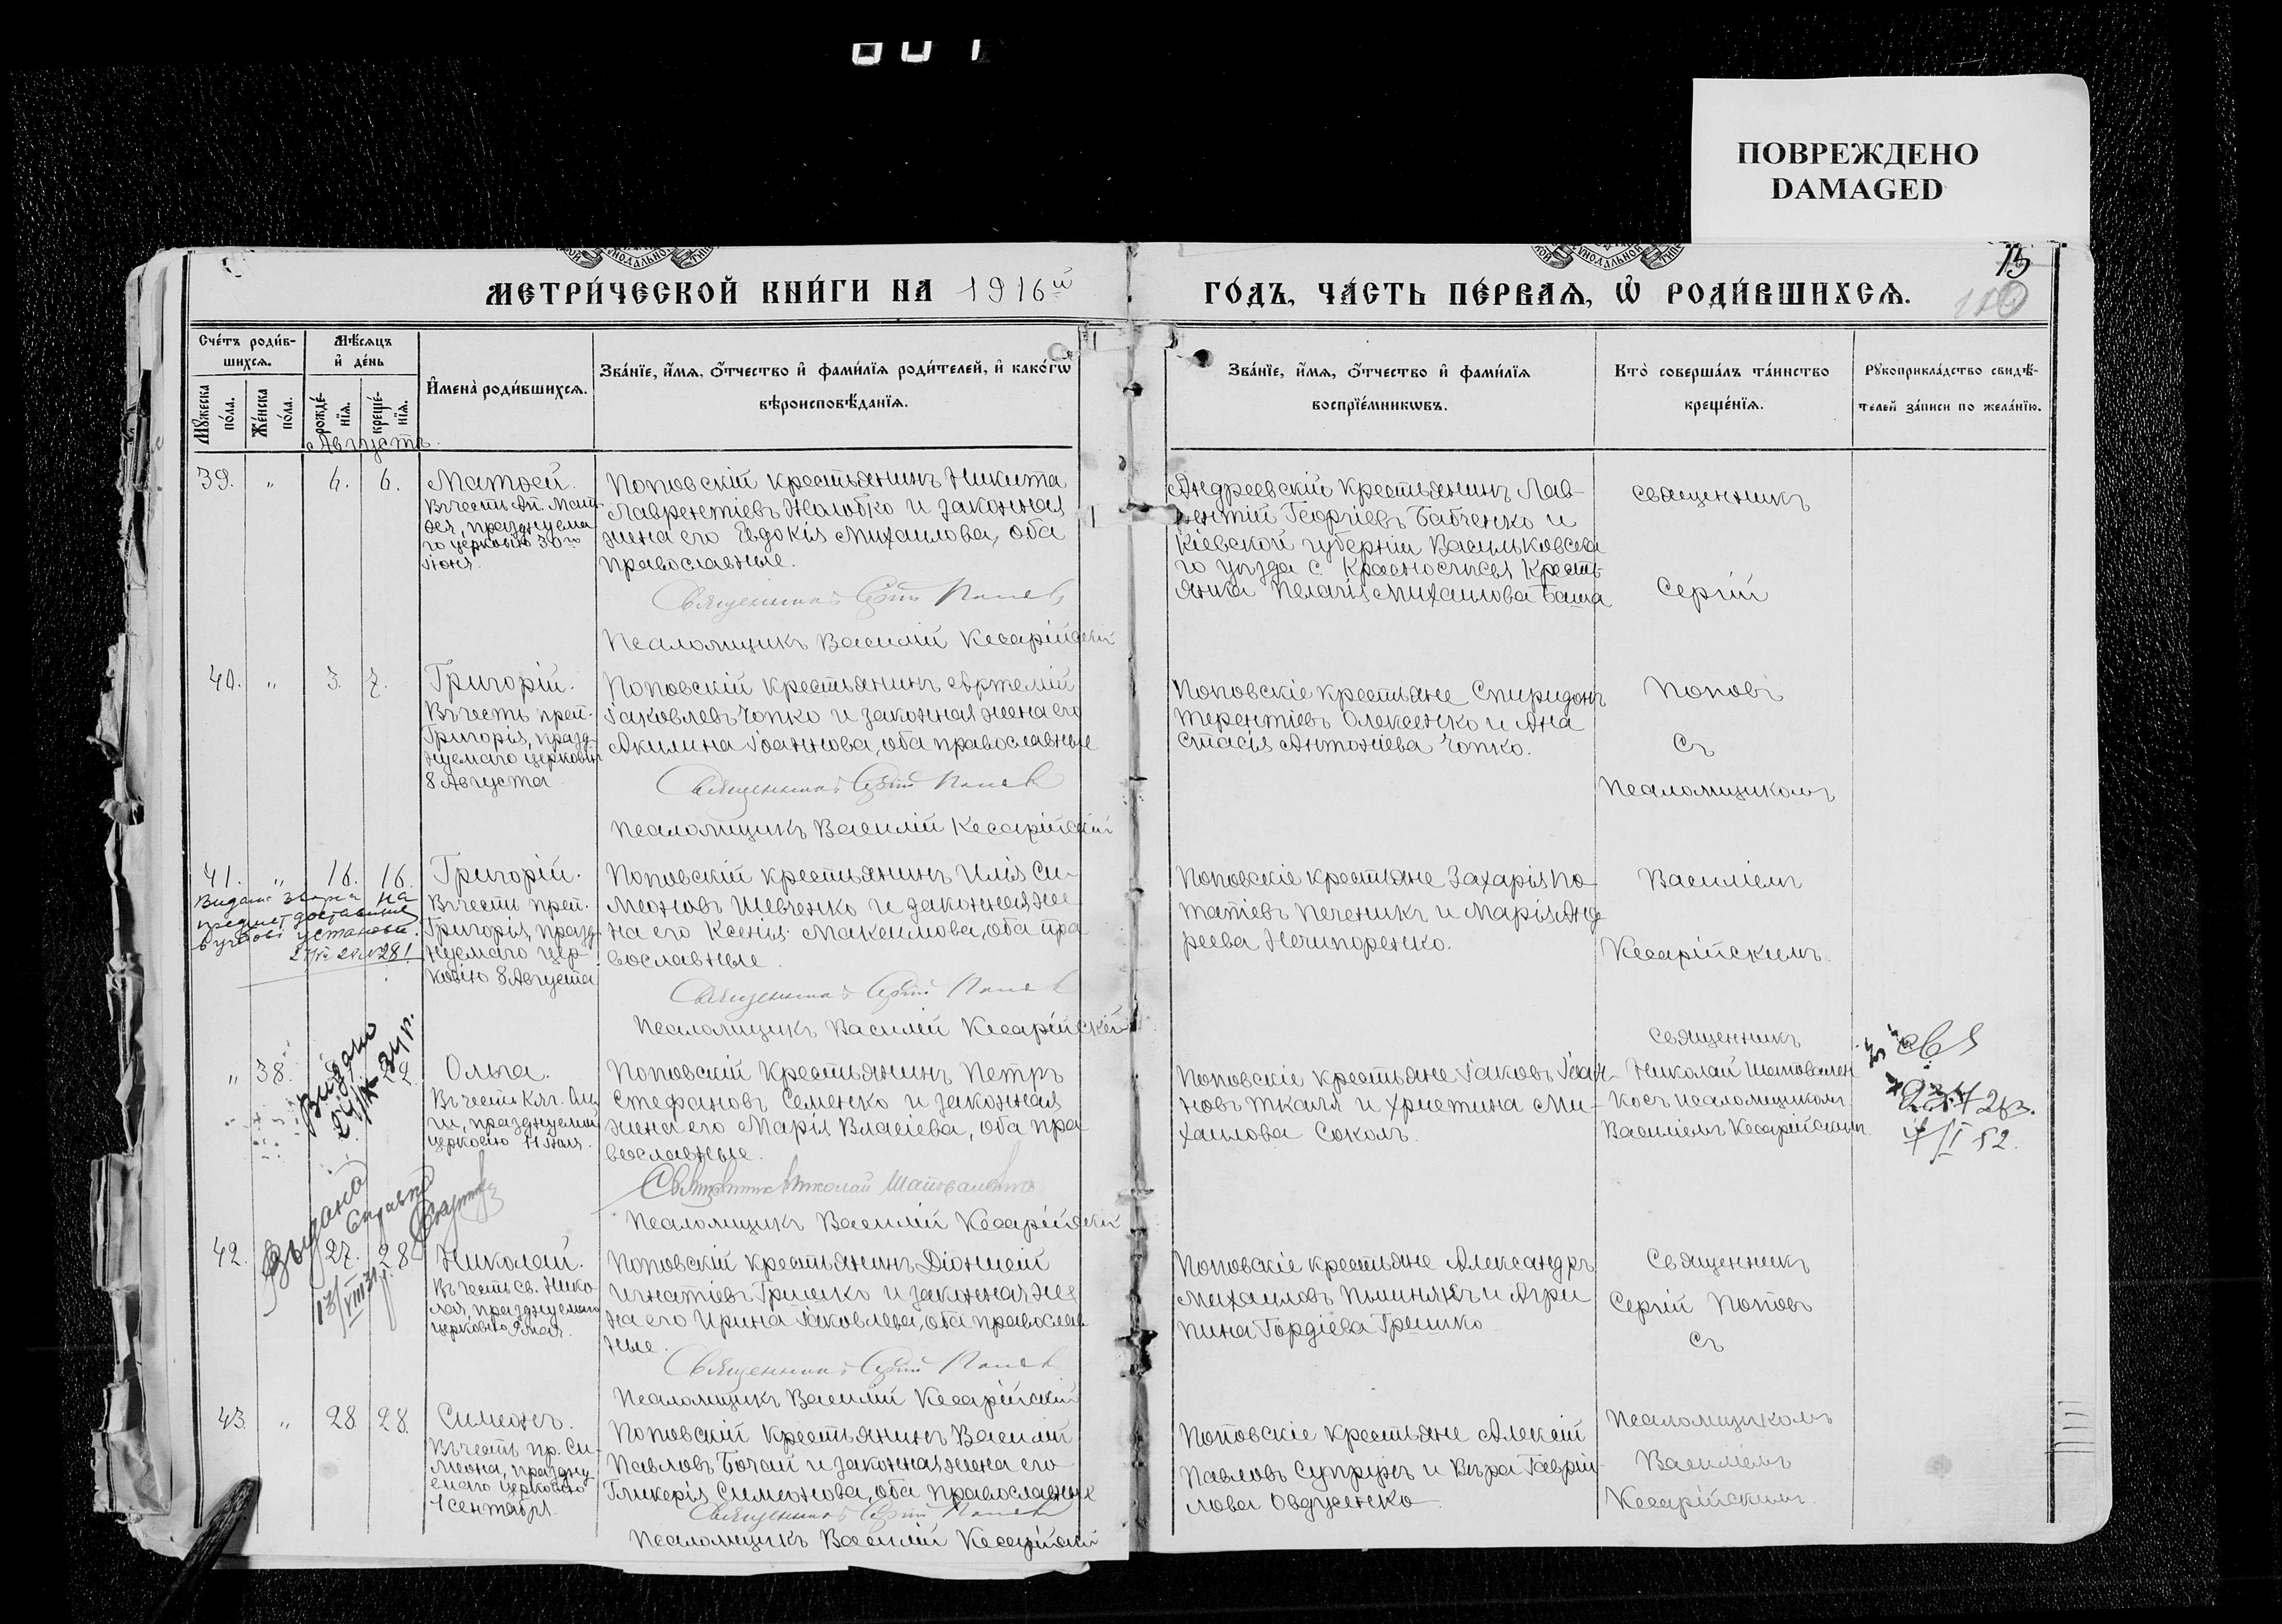 ПОВРЕЖДЕНО
DAMAGED
МЕТРИ́ЧЕСКОЙ КНИ́ГИ НА 1916й
ГО́ДЪ, ЧА́СТЬ ПЕ́РВАѦ, Ѽ РОДИ́ВШИХСѦ.
15
Сче́тъ роди́в-
шихсѧ.
Мꙋжеска по́ла.
Же́нска по́ла.
Мѣ́сѧцъ
и҆ де́нь
рожде́нїѧ.
креще́нїѧ.
И҆мена̀ роди́вшихсѧ.
Зва́нїе, и҆́мѧ, ѻ҆́тчество и҆ фами́лїѧ роди́телей, и҆ како́гѡ
вѣроисповѣ́данїѧ.
Зва́нїе, и҆́мѧ, ѻ҆́тчество и҆ фами́лїѧ
воспрїе́мникѡвъ.
Кто̀ соверша́лъ та́инство
креще́нїѧ.
Рꙋкоприкла́дство свидѣ́-
телей за́писи по жела́нїю.
Августъ.
39. " 6. Матѳей.
Въ честь Ап. Мат
ѳея, празднуема
го церковію 30го
Іюня.
Поповскій крестьянинъ Никита
Лаврентіевъ Жолобко и законная
жена его Евдокія Михаилова, оба
православные.
Священникъ Сергій Поповъ
Псаломщикъ Василій Кесарійскій
Андреевскій крестьянинъ Лав-
рентій Георгіевъ Бабченко и
Кіевской губерніи Васильковска
го уѣзда с. Кресть-
янка Пелагія Михаилова
священникъ
Сергій
40. " 3. 7. Григорій.
Въ честь преп.
Григорія, празд-
нуемаго церковію
8 Августа
Поповскій крестьянинъ Артемій
Іаковлевъ Чопко и законная жена его
Акилина Іоаннова, оба православные
Священникъ Сергій Поповъ
Псаломщикъ Василій Кесарійскій
Поповскіе крестьяне Спиридонъ
Терентіевъ Олексенко и Ана
стасія Антоніева Чопко.
Поповъ
Съ
Псаломщикомъ
41. " 16. 16. Григорій.
Въ честь преп.
Григорія, празд-
нуемаго цер
ковію 8 Августа
на
281
Поповскій крестьянинъ Илія Си-
меоновъ Шевченко и законная же
на его Ксенія Максимова, оба пра
вославные.
Священникъ Сергій Поповъ
Псаломщикъ Василій Кесарійскій
Поповскіе крестьяне Захарія По-
тапіевъ Печеникъ и Марія Анд
реева Нечипоренко.
Василіемъ
Кесарійскимъ.
" 38. Ольга.
Видано
Въ честь Княг. Оль
ги, празднуемой
церковію 11 Іюля.
Поповскій крестьянинъ Петръ
Стефановъ Семенко и законная
жена его Марія Власіева, оба пра
вославные.
Священникъ Николай Шаповаленко
Псаломщикъ Василій Кесарійскій
Поповскіе крестьяне Іаковъ Іоан-
новъ Ткаля и Христина Ми-
хаилова Соколъ.
Священникъ
Николай Шаповален
ко съ псаломщикомъ
Василіемъ Кесарійскимъ.
42. 27. 28 Николай.
Выдана
справка
Въ честь св. Нико
лая, празднуемаго
церковію 9 мая.
Поповскій крестьянинъ Діонисій
Игнатіевъ Гришко и законная же
на его Ирина Іаковлева, оба православ
ные.
Священникъ Сергій Поповъ
Псаломщикъ Василій Кесарійскій
Поповскіе крестьяне Александръ
Михаиловъ и Агри
пина Гордіева Гришко
Священникъ
Сергій Поповъ
Съ
43. " 28 28. Симеонъ.
Въ честь пр. Си-
меона, праздну
емаго церковію
1 сентября.
Поповскій крестьянинъ Василій
Павловъ Бочай и законная жена его
Гликерія Симеонова, оба православные
Священникъ Сергій Поповъ
Псаломщикъ Василій Кесарійскій
Поповскіе крестьяне Алексій
Павловъ Супрунъ и Вѣра Гавріи-
лова Овдусенко.
Псаломщикомъ
Василіемъ
Кесарійскимъ.